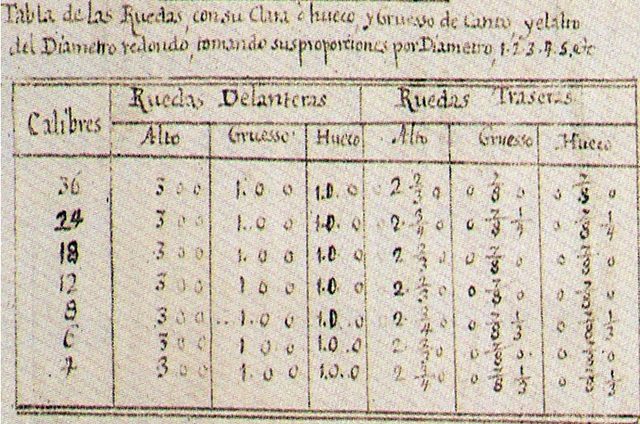 Tabla de las Ruedas, con su Clara ò hueco, y Gruesso de canto, y el alto
del Diametro redondo, tomando sus proporciones por Diametro, 1. 2. 3. 4. 5. etc
Ruedas Delanteras Ruedas Traseras
Calibres
Alto Gruesso Hueco Alto Gruesso Hueco
36 3 0 0 1. 0 0 1. 0. 0 2 2/3 0 0 7/8 0 0 7/8 0
24 3 0 0 1. 0 0 1. 0. 0 2 3/4 0 0 7/8 1/4 0 7/8 1/4
18 3 0 0 1. 0 0 1. 0 0 2 2/3 0 0 7/8 0 0 7/8 0
12 3 0 0 1 0 0 1. 0 0 2 2/3 0 0 7/8 0 0 7/8 0
8 3 0 0 1. 0 0 1. 0. 0 2 3/4 0 7/8 1/3 0 7/8 1/3
6 3 0 0 1 0 0 1. 0. 0 2 2/3 0 7/8 0 0 7/8 0
4 3 0 0 1. 0 0 1. 0. 0 2 3/4 0 7/8 1/3 0 7/8 1/3